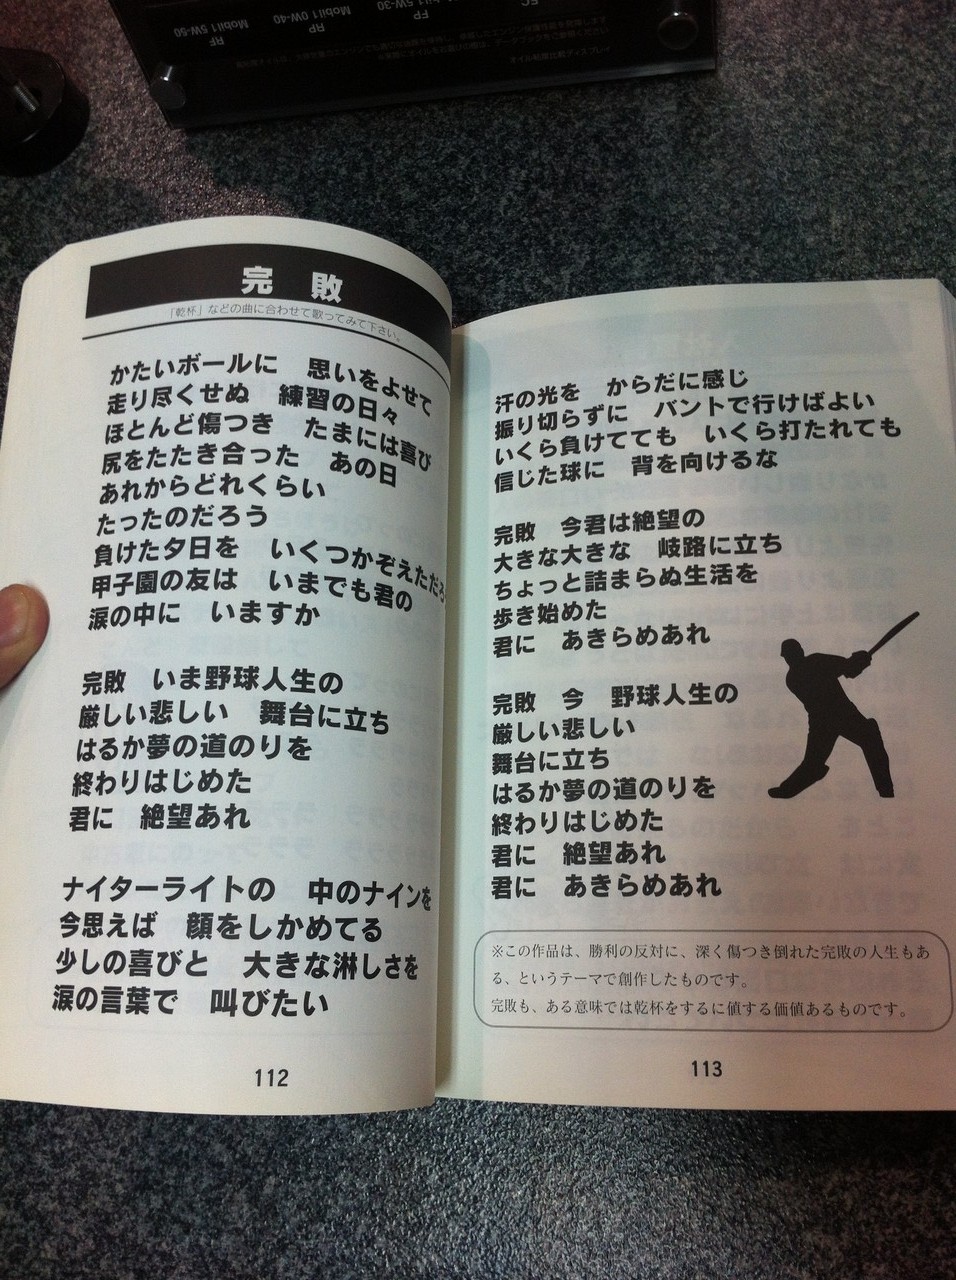 完敗
「乾杯」などの曲に合わせて歌ってみて下さい。
かたいボールに　思いをよせて
走り尽くせぬ　練習の日々
ほとんど傷つき　たまには喜び
尻をたたき合った　あの日
あれからどれくらい
たったのだろう
負けた夕日を　いくつかぞえただろ
甲子園の友は　いまでも君の
涙の中に　いますか
完敗　いま野球人生の
厳しい悲しい　舞台に立ち
はるか夢の道のりを
終わりはじめた
君に　絶望あれ
ナイターライトの　中のナインを
今思えば　顔をしかめてる
少しの喜びと　大きな淋しさを
涙の言葉で　叫びたい
112
汗の光を　からだに感じ
振り切らずに　バントで行けばよい
いくら負けてても　いくら打たれても
信じた球に　背を向けるな
完敗　今君は絶望の
大きな大きな　岐路に立ち
ちょっと詰まらぬ生活を
歩き始めた
君に　あきらめあれ
完敗　今　野球人生の
厳しい悲しい
舞台に立ち
はるか夢の道のりを
終わりはじめた
君に　絶望あれ
君に　あきらめあれ
※この作品は、勝利の反対に、深く傷つき倒れた完敗の人生もあ
る、というテーマで創作したものです。
完敗も、ある意味では乾杯をするに値する価値あるものです。
113
オイル粘度比較ディスプレイ
FP
RP
Mobil 1 0W-40
RF
Mobil 1 5W-50